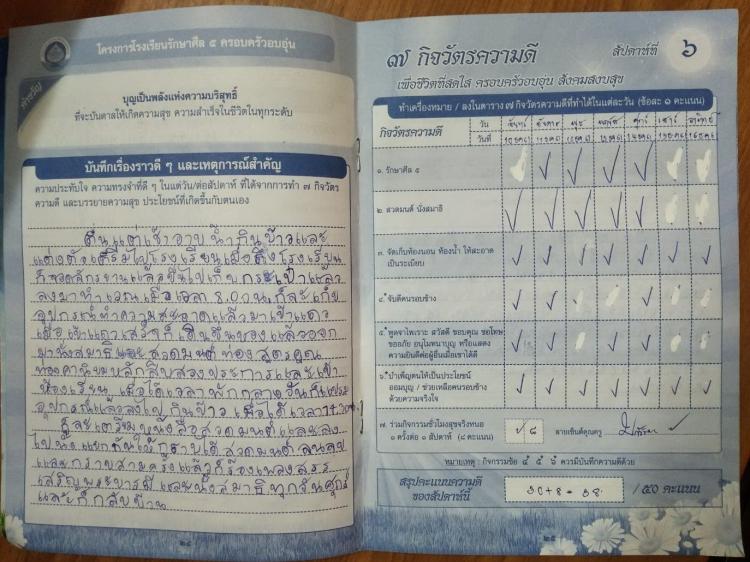 โครงการโรงเรียนรักษาศีล ๕ ครอบครัวอบอุ่น
บุญเป็นพลังแห่งความบริสุทธิ์
ที่จะบันดาลให้เกิดความสุข ความสำเร็จในชีวิตในทุกระดับ
บันทึกเรื่องราวดี ๆ และเหตุการณ์สำคัญ
ความประทับใจ ความทรงจำที่ดี ๆ ในแต่วัน/ต่อสัปดาห์ ที่ได้จากการทำ ๗ กิจวัตร
ความดี และบรรยายความสุข ประโยชน์ที่เกิดขึ้นกับตนเอง
ตื่นแต่เช้าอาบน้ำกินข้าวและ
แต่งตัวเตรียมไปโรงเรียนเมื่อถึงโรงเรียน
ก็จอดจักรยานและขึ้นไปเก็บกระเป๋าแล้ว
ลงมาทำเวณเมื่อเวลา 8.00 น. ก็จะเก็บ
อุปกรณ์ทำความสะอาดแล้วมาเข้าแถว
เมื่อเข้าแถวเสร็จก็เดินขึ้นห้องแล้วออก
มานั่งสมาธิและสวดมนต์ท่องสูตรคูณ
ท่องค่านิยมหลักสิบสองประการและเข้า
ห้องเรียน เมื่อได้เวลาพักกลางวันก็
อุปกรณ์แล้วลงไปกินข้าว เมื่อได้เวลา
ก็จะเตรียมหนังสือสวดมนต์และลง
ไปนั่ง สวดมนต์ จนจบ
และกราบสามครั้งแล้วก็ร้องเพลงสรร
เสริญพระบารมี และนั่งสมาธิทุกวันศุกร์
และก็กลับบ้าน
๒๔
๗ กิจวัตรความดี สัปดาห์ที่ ๖
เพื่อชีวิตที่สดใส ครอบครัวอบอุ่น สังคมสงบสุข
ทำเครื่องหมาย / ลงในตาราง ๗ กิจวัตรความดีที่ทำได้ในแต่ละวัน (ข้อละ ๑ คะแนน)
กิจวัตรความดี วัน จันทร์ อังคาร พุธ ศุกร์ เสาร์ อาทิตย์
วันที่
๑. รักษาศีล ๕
๒. สวดมนต์ นั่งสมาธิ
๓. จัดเก็บห้องนอน ห้องน้ำ ให้สะอาด
เป็นระเบียบ
๔. จับดีคนรอบข้าง
๕. พูดจาไพเราะ สวัสดี ขอบคุณ ขอโทษ
ขออภัย อนุโมทนาบุญ หรือแสดง
ความยินดีต่อผู้อื่นเมื่อเขาได้ดี
๖. บำเพ็ญตนให้เป็นประโยชน์
ออมบุญ / ช่วยเหลือคนรอบข้าง
ด้วยความจริงใจ
๗. ร่วมกิจกรรมชั่วโมงสุขจริงหนอ
๑ ครั้งต่อ ๑ สัปดาห์ (๘ คะแนน) ๘ ลายเซ็นต์คุณครู
หมายเหตุ : กิจกรรมข้อ ๔ ๕ ๖ ควรมีบันทึกความดีด้วย
สรุปคะแนนความดี
ของสัปดาห์นี้ 30+8 = 38 / ๕๐ คะแนน
๒๕